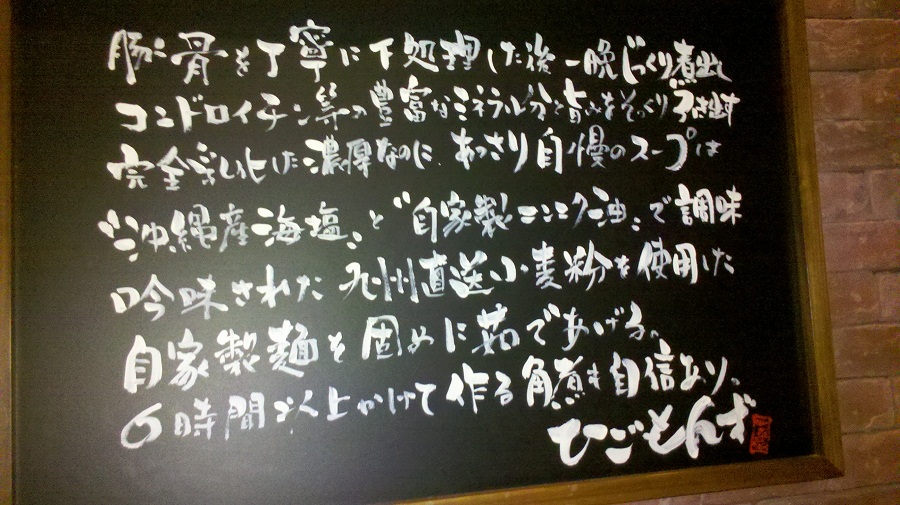 豚骨を丁寧に下処理した後一晩じっくり煮出し
コンドロイチン等の豊富なミネラル分と旨みをそっくり引き出す
完全乳化した濃厚なのに、あっさり自慢のスープは
“沖縄産海塩”と“自家製ニンニク油”で調味
吟味された九州直送小麦粉を使用した
自家製麺を固めに茹であげる。
6時間以上かけて作る角煮も自信あり。
ひごもんず